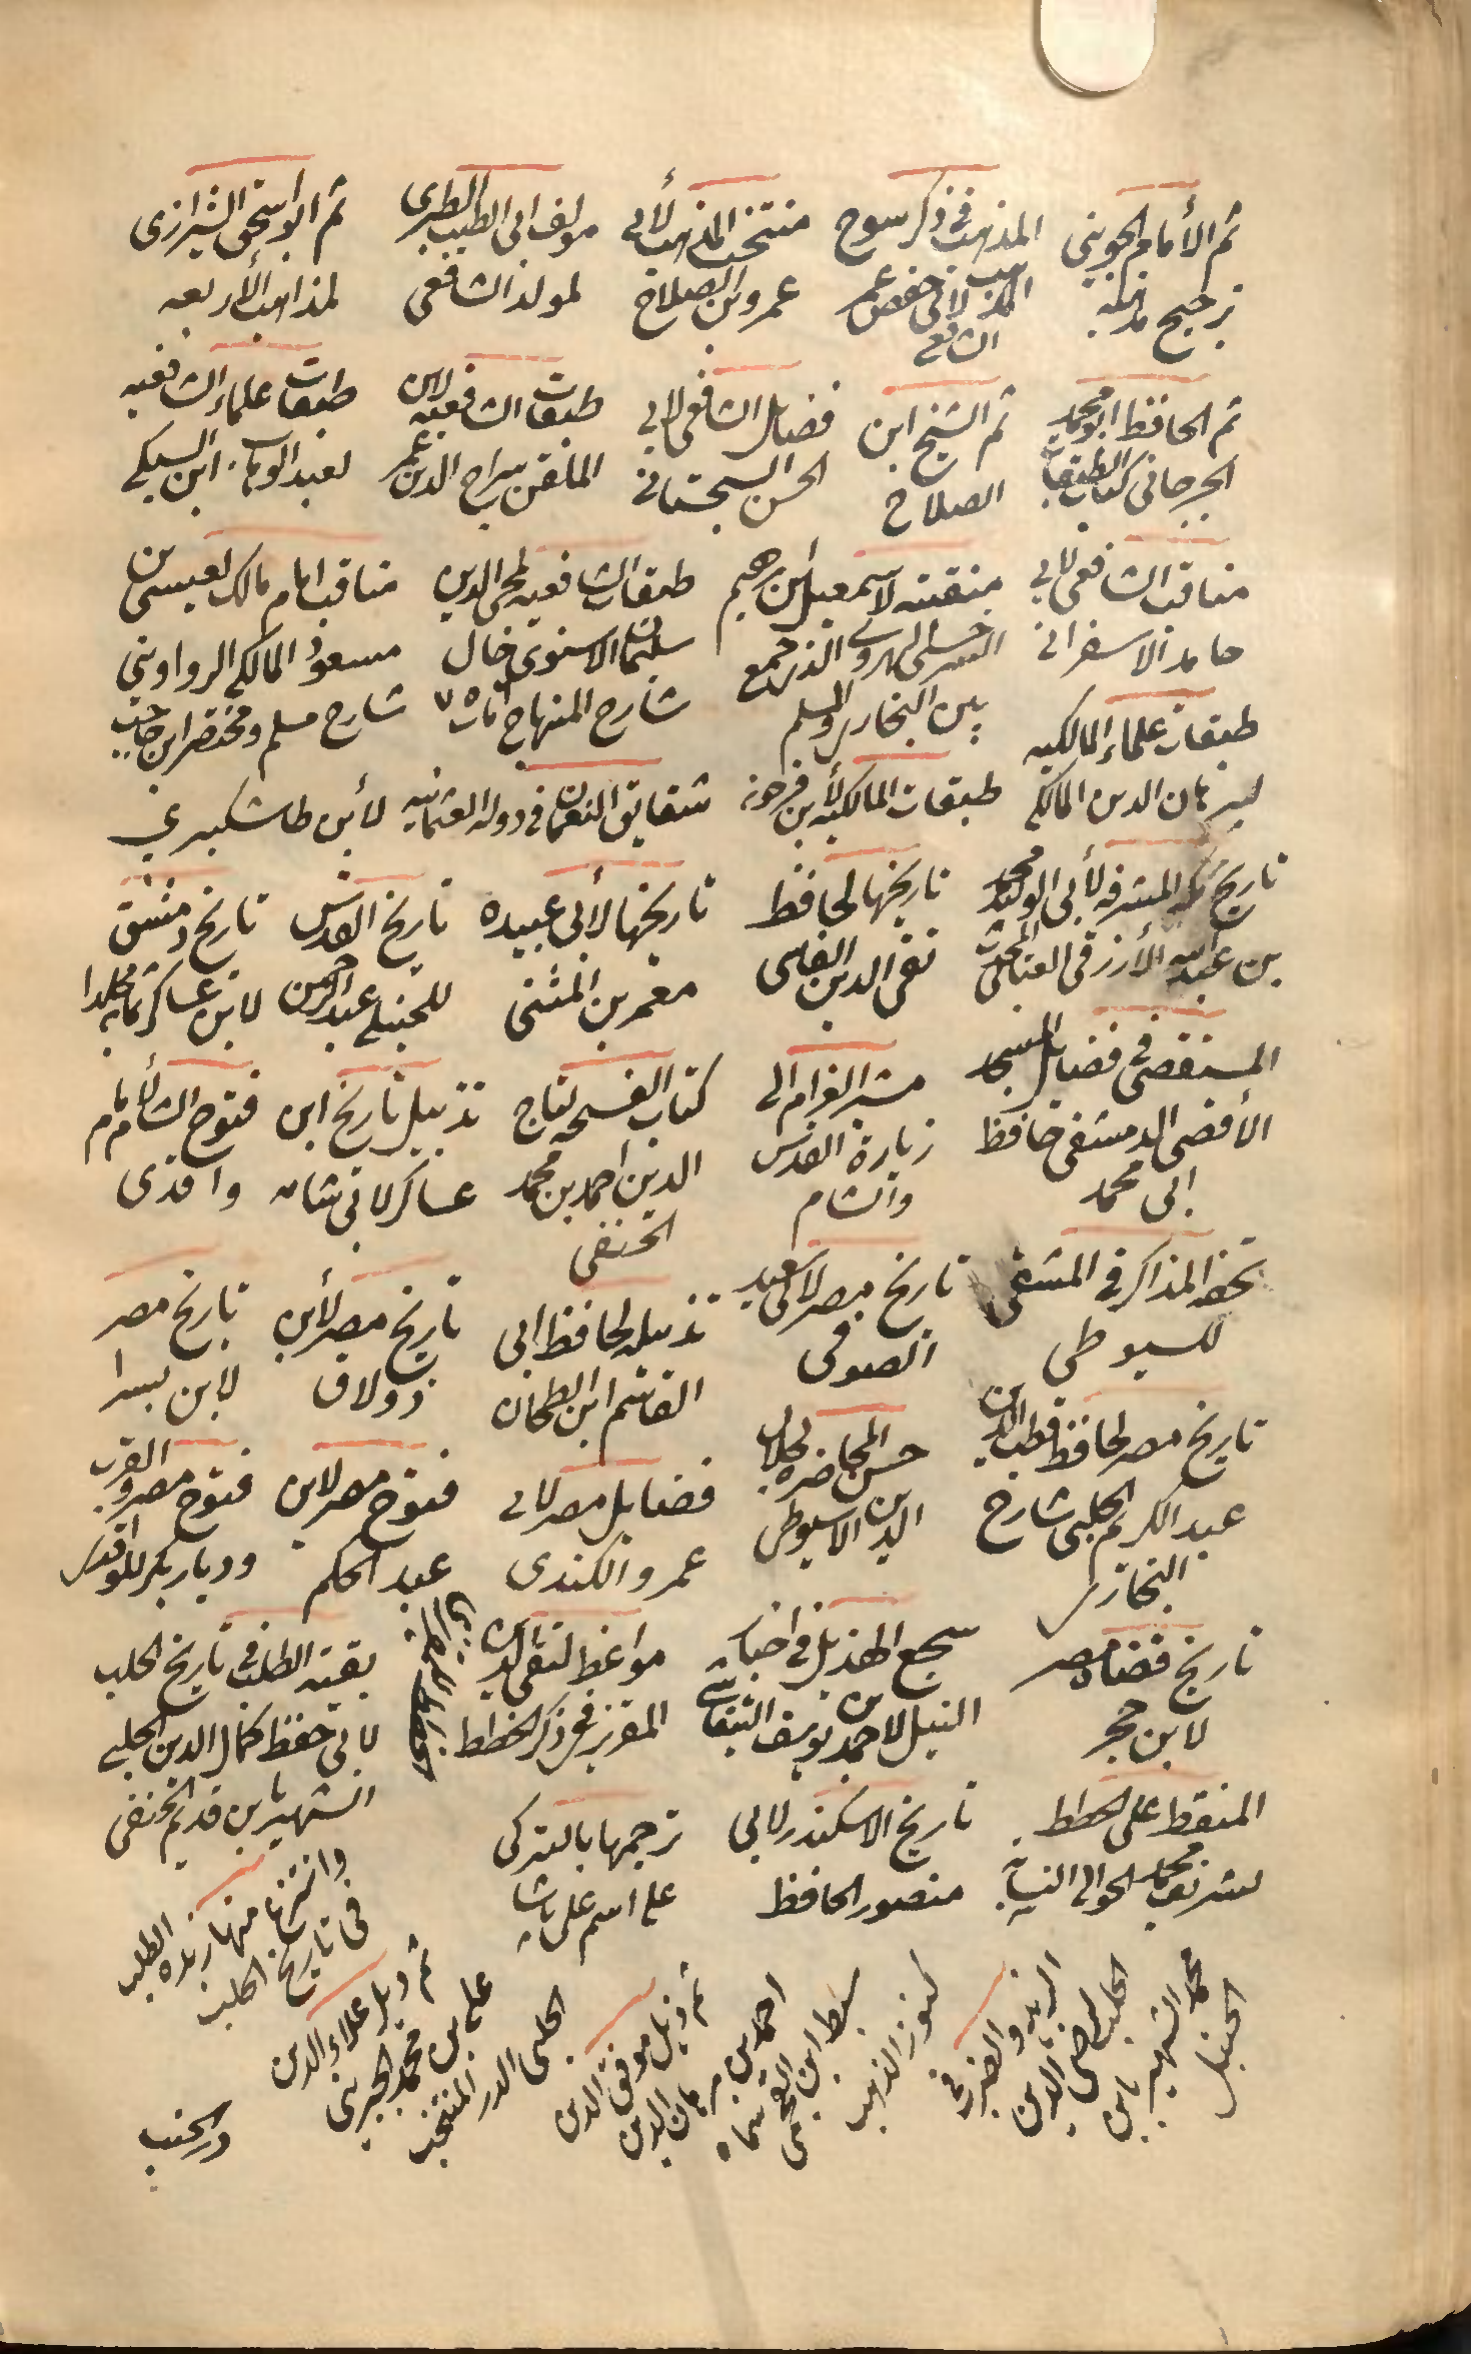 ثم الأمام الجوينى
ترجيح مذهبه
المذهب فى ذكر سوح
المذهب لابى حفص عمر
الشافعى
منتخب المذهب لأبى
عمرو بن الصلاح
مولف ابى الطيب الطبرى
لمولد الشافعى
ثم ابو اسحق الشيرازى
لمذاهب الأربعه
ثم الحافظ ابو محمد
الجرجانى كتاب الطبقات
ثم الشيخ ابن
الصلاح
فضايل الشافعى لابى
الحسن السجستانى
طبقات الشافعيه لابن
الملقن سراج الدين عمر
طبقات علماء الشافعيه
لعبد الوهاب ابن السبكى
مناقب الشافعى لابى
حامد الاسفرانى
منقبته لاسمعيل ابن ابرهيم
السرخسى الهروى الذى جمع
بين البخارى والمسلم
طبقات الشافعيه لمحى الدين
سليمان الاسنوى خال
شارح المنهاج مات
مناقب امام مالك لعيسى بن
مسعود المالكى الرواوينى
شارح مسلم ومختصر ابن حاجب
طبقات علماء المالكيه
لبرهان الدين المالكى
طبقات المالكيه لأبن فرحون
شقايق النعمان فى دولة العثمانيه
لأبن طاشكبرى
تاريخ مكه المشرفه لأبى الوليد محمد
بن عبد الله الأزرقى
تاريخها لحافظ
تقى الدين الفاسى
تاريخها لأبى عبيده
معمر بن المثنى
تاريخ القدس
للحنبلى عبد الرحمن
تاريخ دمشق
لابن عساكر ثمانيه مجلدا
المستقصى فى فضايل المسجد
الأقصى الدمشقى حافظ
ابى محمد
مشير الغرام الى
زيارة القدس
والشام
كتاب الفسحه لتاج
الدين احمد بن محمد
الحنفى
تذييل تاريخ ابن
عساكر لابى شامه
فتوح الشام لأمام
واقدى
تحفة المذاكر فى المنتقى
للسيوطى
تاريخ مصر لابى سعيد
الصوفى
تذييله لحافظ ابى
القاسم ابن الطحان
تاريخ مصر لأبن
زولاق
تاريخ مصر
لابن بسرا
تاريخ مصر لحافظ قطب الدين
عبد الكريم الحلبى شارح
البخارى
حسن المحاضره لجلال
الدين الاسيوطى
فضايل مصر لابى
عمرو الكندى
فتوح مصر لابن
عبد الحكم
فتوح مصر والغرب
وديار بكر للواقدى
تاريخ قضاة مصر
لابن حجر
سجع الهذيل فى اخبار
النيل لاحمد بن يوسف التيفاشى
مواعظ لتقى الدين
المقريزى فى ذكر الخطط
بغية الطلب فى تاريخ الحلب
لابى حفظ كمال الدين الحلبى
الشهير بابن قديم الحنفى
المنقط على الخطط
لشريف محمد الجوالى النسابه
تاريخ الاسكندر لابى
منصور الحافظ
ترجمها بالتركى
على اسم على پاشا
وانتزعها منها زبدة الطلب
فى تاريخ الحلب
ثم ذيل علاء الدين
على بن محمد الجبرينى
الحلبى الدر المنتخب
ثم ذيل موفق الدين
احمد بن برهان الدين
سبط ابن العجمى سماه
كنوز الذهب
الزبد والضرب فى
الحلب لرضى الدين
محمد الشهير بابن
الحنبلى
در الحبب